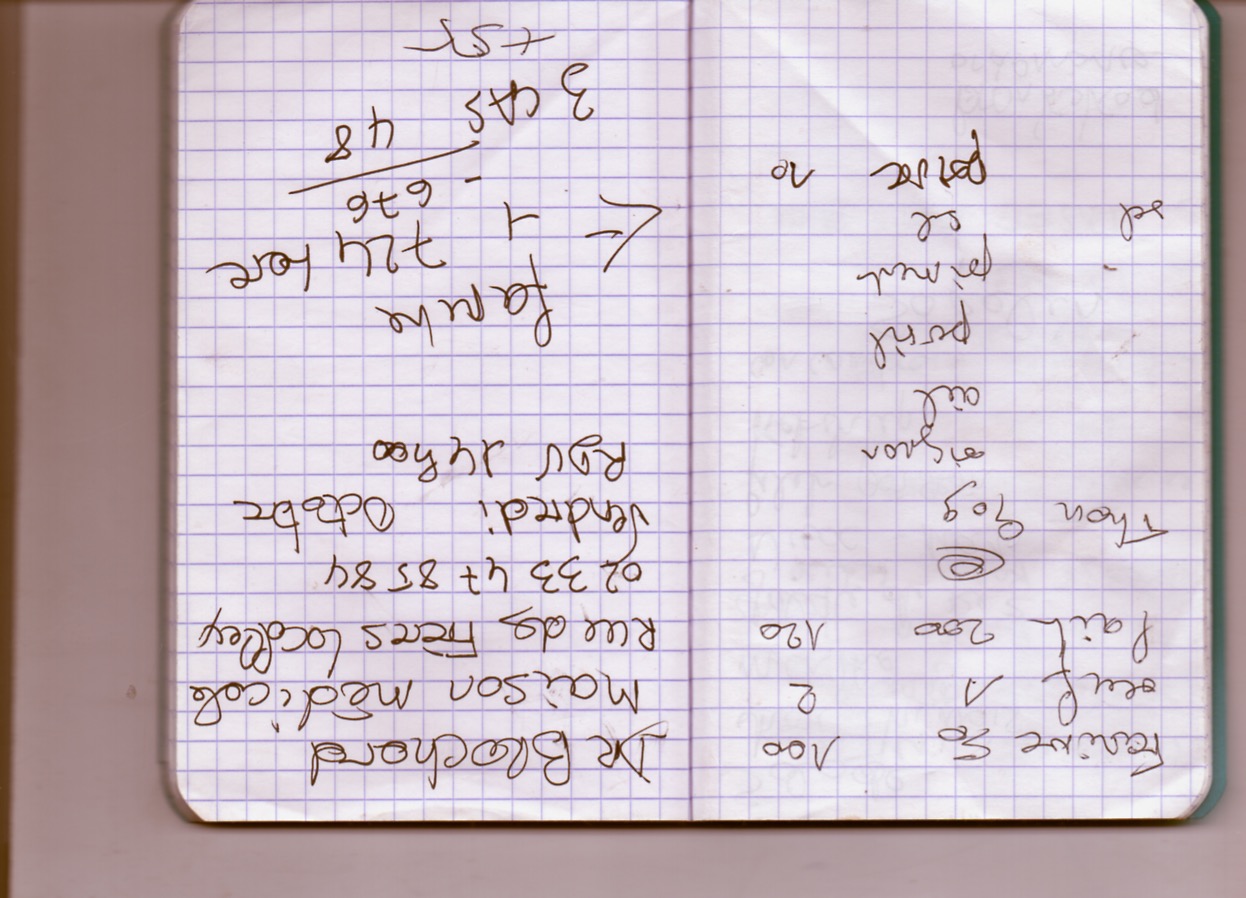 Farine 50 100
oeuf 1 2
lait 200 120
Thon 90g
oignon
ail
persil
piment
sel sel
poivre 10
Dr Blochard
Maison médicale
Rue des Frères
02 33 47 85 84
Vendredi Octobre
RDV 14h00
1 724
- 676
48
3 CAS